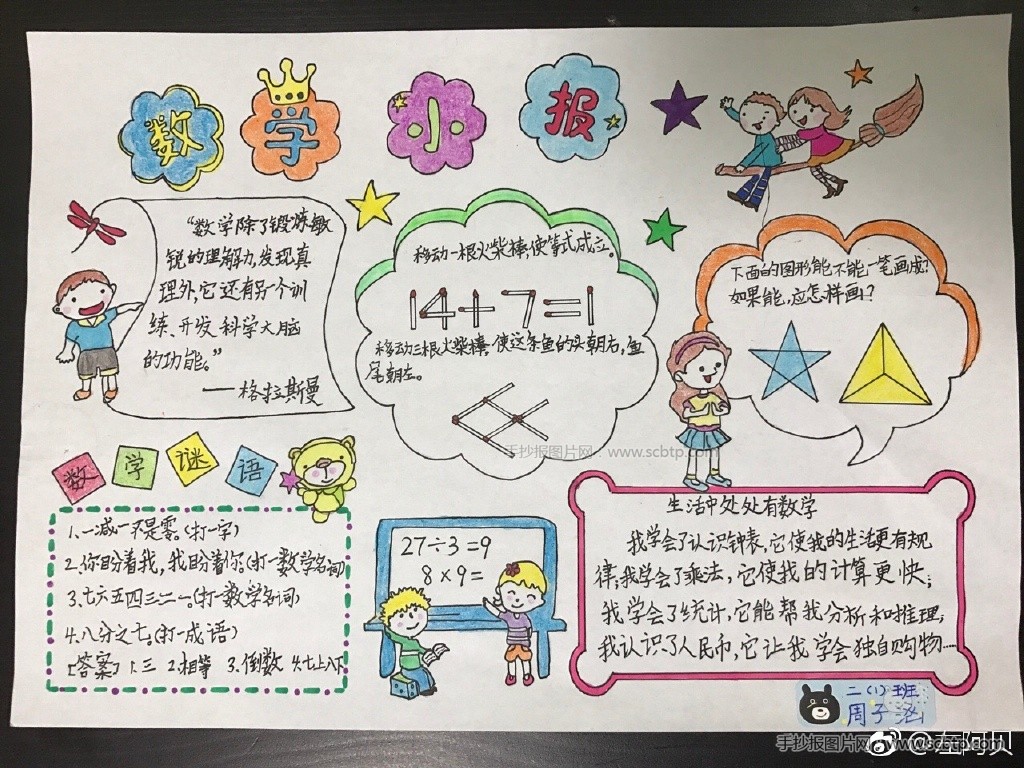 数学小报
“数学除了锻炼敏
锐的理解力,发现真
理外,它还有另一个训
练、开发科学大脑
的功能。”
——格拉斯曼
移动一根火柴棒,使等式成立。
14+7=1
移动三根火柴棒,使这条鱼的头朝右,鱼
尾朝左。
下面的图形能不能一笔画成?
如果能,应怎样画?
手抄报图片网:www.scbtp.com
数学谜语
1、一减一不是零。(打一字)
2、你盼着我,我盼着你。(打一数学名词)
3、七六五四三二一。(打一数学名词)
4、八分之七。(打一成语)
[答案] 1.三 2.相等 3.倒数 4.七上八下
27÷3=9
8×9=
生活中处处有数学
我学会了认识钟表,它使我的生活更有规
律;我学会了乘法,它使我的计算更快;
我学会了统计,它能帮我分析和推理;
我认识了人民币,它让我学会独自购物...
二(1)班
周子涵
@左阿贝
手抄报图片网:www.scbtp.com